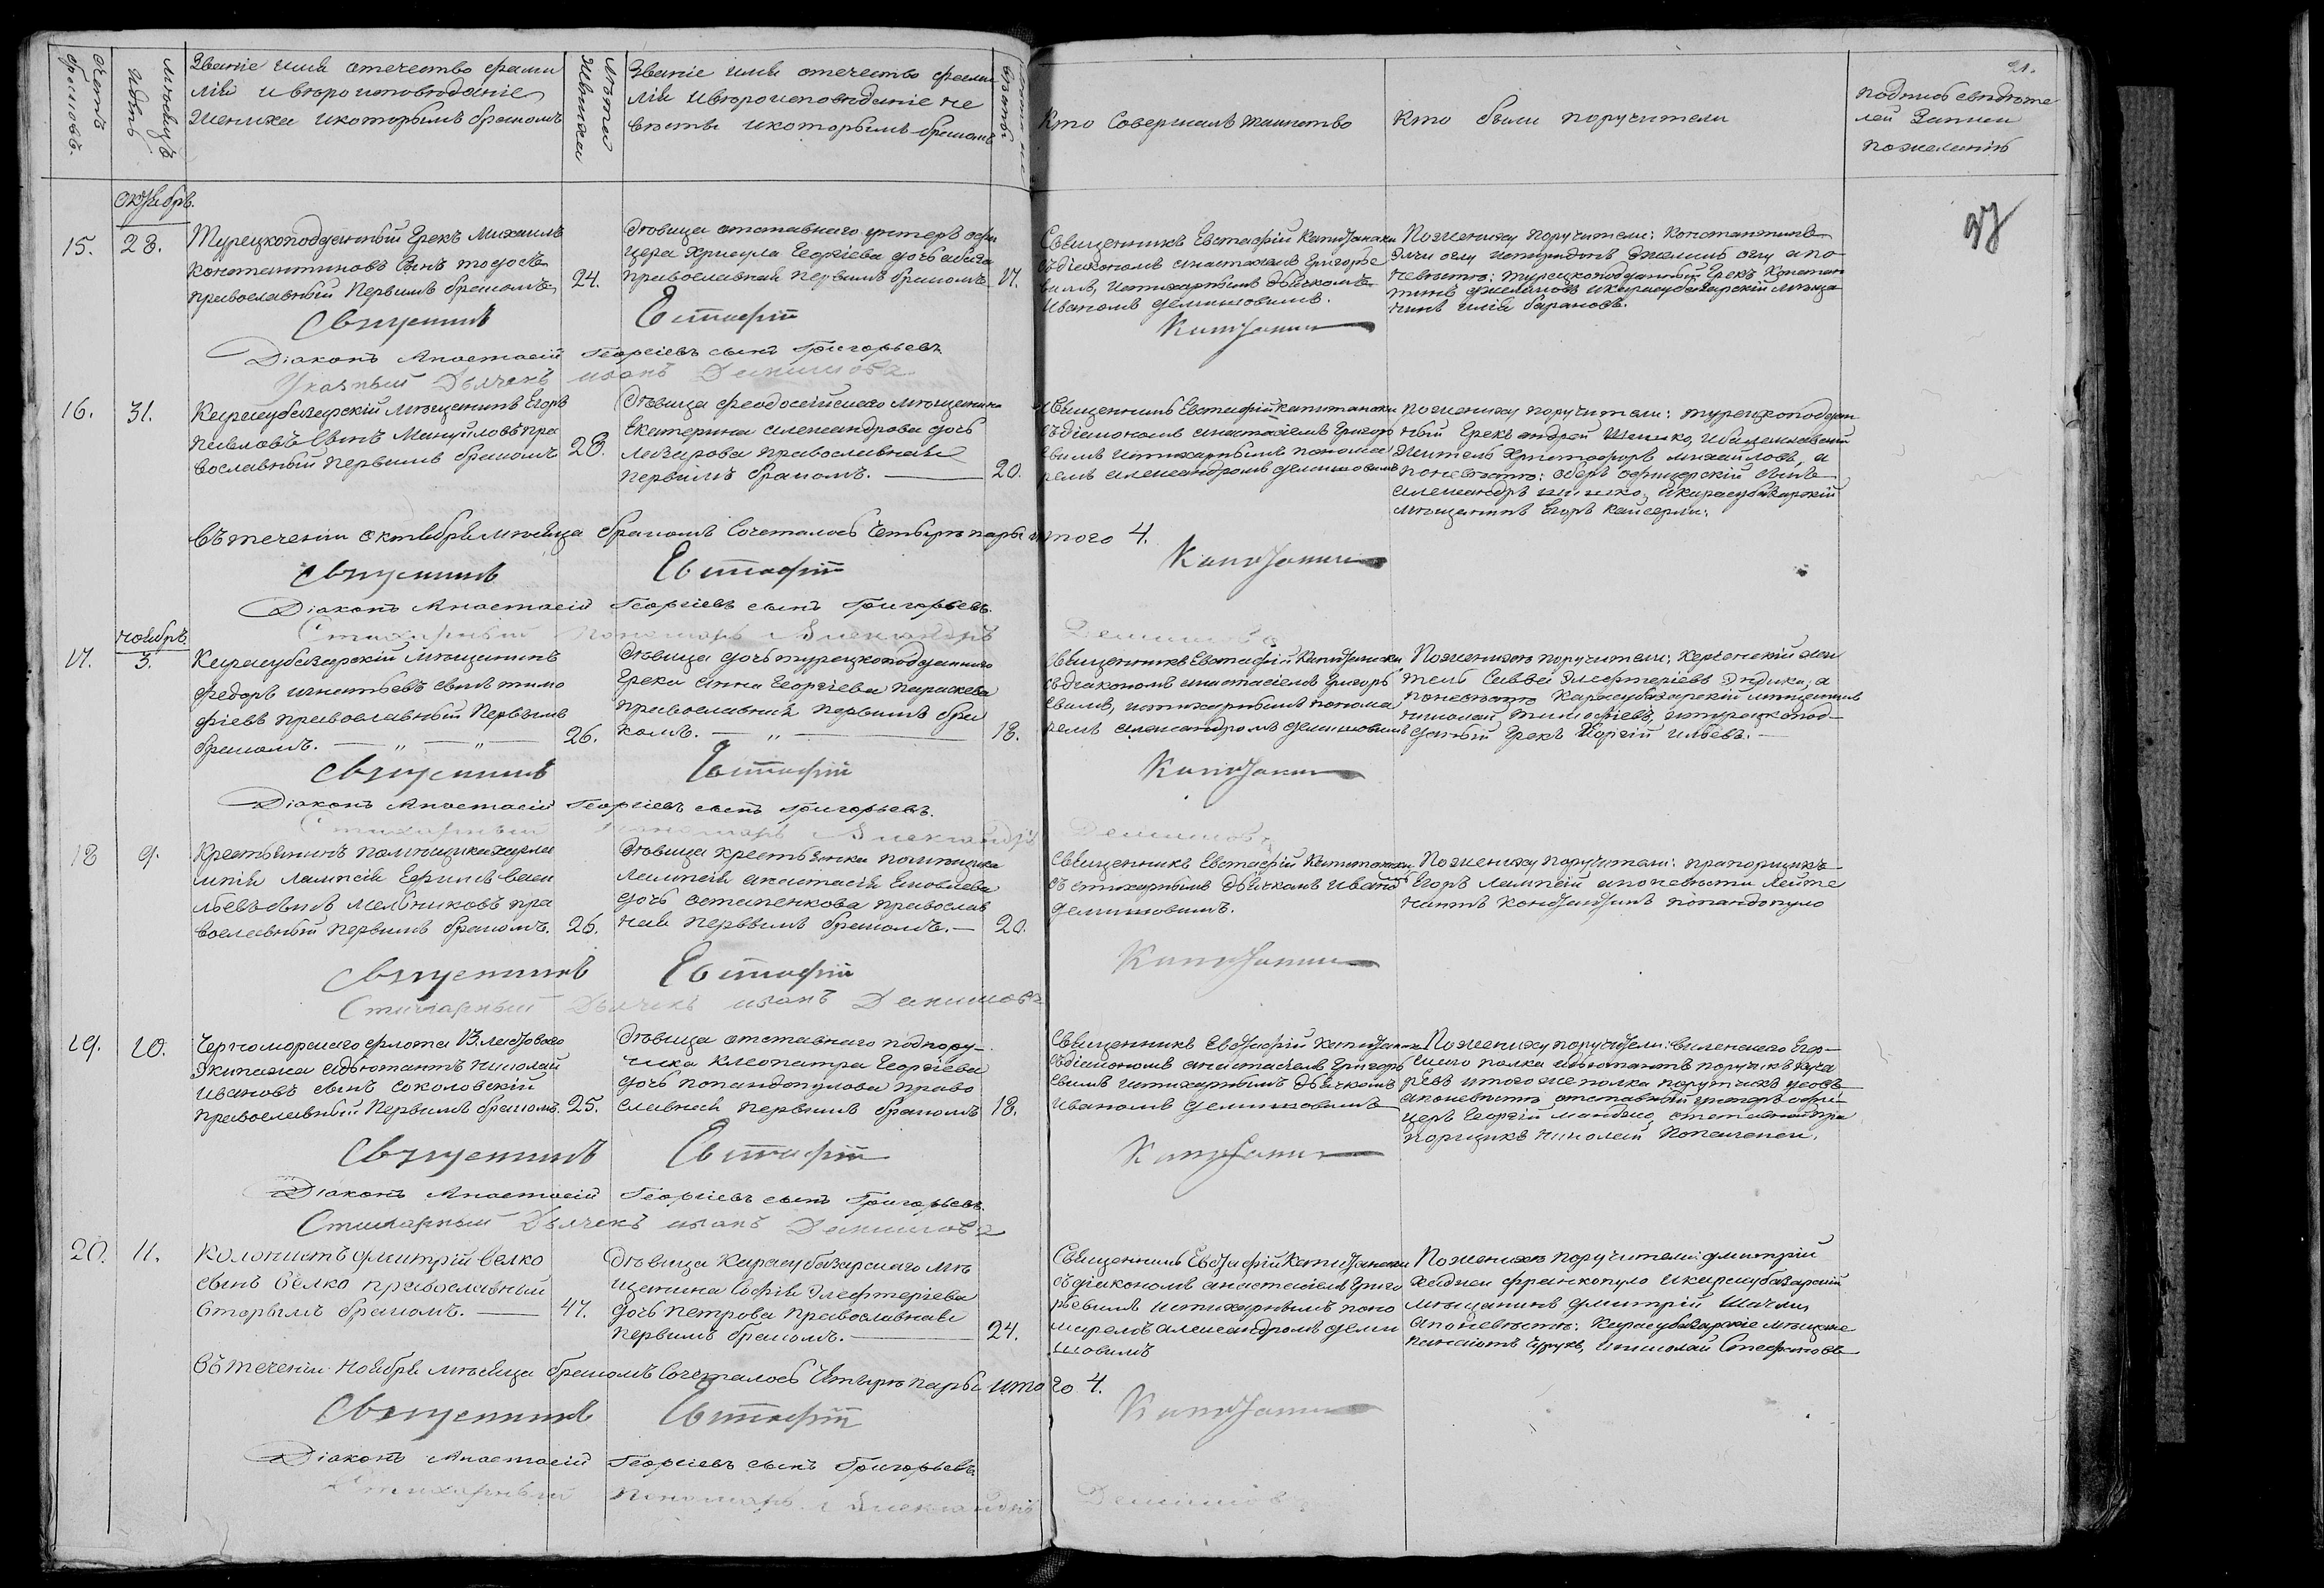 21.
счетъ браковъ.
мѣсяцъ и день
Званіе имя отечество фами
лія и вѣроисповѣданіе
жениха и которымъ бракомъ
Лѣта жениха
Званіе имя отечество фами
лія и вѣроисповѣданіе не
вѣсты и которымъ бракомъ
невѣсты
Кто совершалъ таинство
Кто были поручители
подпись свидѣте
лей записи
по желанію
октябрь.
15.
28.
Турецкоподданный Грекъ Михаилъ
Константиновъ сынъ
православный первымъ бракомъ
24.
Дѣвица отставнаго унтеръ офи
цера Георгіева дочь
православная первымъ бракомъ
17.
Священникъ Евстафій Капитанаки
съ діакономъ Анастасіемъ Григорье
вымъ, и стихарнымъ дьячкомъ
Иваномъ Демишовымъ.
По женихѣ поручители: Константинъ
оглу и оглу а по
невѣстѣ: турецкоподданный Грекъ Констан
тинъ и карасубазарскій мѣща
нинъ Илія Барановъ.
Священникъ Евстафій Капитанаки
Діаконъ Анастасій Георгіевъ сынъ Григорьевъ
Указный Дьячекъ иванъ Демишовъ
16.
31.
Карасубазарскій мѣщанинъ Егоръ
Павловъ сынъ Мануйловъ пра
вославный первымъ бракомъ
28.
Дѣвица феодосійскаго мѣщанина
Екатерина Александрова дочь
Лазарова православная
первымъ бракомъ.
20.
Священникъ Евстафій Капитанаки
съ діакономъ Анастасіемъ Григорь
евымъ и стихарнымъ понома
ремъ Александромъ Демишовымъ
По женихѣ поручители: турецкоподдан
ный Грекъ Андрей Шишко,
житель Христофоръ Михайловъ, а
по невѣстѣ: оберъ офицерскій сынъ
Александръ Шишко, и карасубазарскій
мѣщанинъ Егоръ Кайсерли.
Въ теченіи октября мѣсяца бракомъ сочеталось четыре пары итого 4.
Священникъ Евстафій Капитанаки
Діаконъ Анастасій Георгіевъ сынъ Григорьевъ.
Стихарный пономарь Александръ Демишовъ
ноябрь
17.
3.
Карасубазарскій мѣщанинъ
Федоръ Игнатьевъ сынъ Тимо
фіевъ православный первымъ
бракомъ.
26.
Дѣвица дочь турецкоподданнаго
Грека Анна Георгіева Параскева
православная первымъ бра
комъ.
18.
Священникъ Евстафій Капитанаки
съ діакономъ Анастасіемъ Григорь
евымъ, и стихарнымъ понома
ремъ Александромъ Демишовымъ
По женихѣ поручители: Керченскій жи
тель Савва Элефтеріевъ а
по невѣстѣ Карасубазарскій мѣщанинъ
Николай Тимофіевъ, и турецкопод
даный Грекъ Георгій Ильевъ.
Священникъ Евстафій Капитанаки
Діаконъ Анастасій Георгіевъ сынъ Григорьевъ.
Стихарный пономарь Александръ Демишовъ
18
9.
Крестьянинъ помѣщика
Лампси Ефимъ Васи
льевъ сынъ Мельниковъ пра
вославный первымъ бракомъ.
26.
Дѣвица крестьянка помѣщика
Лампси Анастасія
дочь Остапенкова православ
ная первымъ бракомъ.
20.
Священникъ Евстафій Капитанаки
съ стихарнымъ дьячкомъ Ивано
Демишовымъ.
По женихѣ поручители: прапорщикъ
Егоръ Лампси а по невѣсти лейте
нантъ Константинъ Попандопуло
Священникъ Евстафій Капитанаки
Стихарный Дьячекъ иванъ Демишовъ
19.
10.
Черноморскаго флота Ластоваго
Экипажа адъютантъ Николай
Ивановъ сынъ Соколовскій
православный первымъ бракомъ.
25.
Дѣвица отставнаго подпору
чика Клеопатра Георгіева
дочь Попандопулова право
славная первымъ бракомъ
18.
Священникъ Евстафій Капитанаки
съ діакономъ Анастасіемъ Григорь
евымъ и стихарнымъ дьячкомъ
Иваномъ Демишовымъ
По женихѣ поручители: Виленскаго Егер
скаго полка адъютантъ поручикъ
и того же полка поручикъ
а по невѣстѣ отставный унтеръ офи
церъ Георгій отставной пра
порщикъ Николай
Священникъ Евстафій Капитанаки
Діаконъ Анастасій Георгіевъ сынъ Григорьевъ.
Стихарный Дьячекъ иванъ Демишовъ
20.
11.
Колонистъ Дмитрій Велко
сынъ Велко православный
вторымъ бракомъ.
47.
Дѣвица Карасубазарскаго мѣ
щанина Софія Элефтеріева
дочь Петрова православная
первымъ бракомъ.
24.
Священникъ Евстафій Капитанаки
съ діакономъ Анастасіемъ Григо
рьевымъ и стихарнымъ поно
маремъ Александромъ Деми
шовымъ
По женихѣ поручители: Дмитрій
Франкопуло и карасубазарскій
мѣщанинъ Дмитрій
а по невѣстѣ: Карасубазарскіе мѣщане
Панаіотъ и Николай Стефановъ
Въ теченіи ноября мѣсяца бракомъ сочеталось четыре пары итого 4.
Священникъ Евстафій Капитанаки
Діаконъ Анастасій Георгіевъ сынъ Григорьевъ
Стихарный пономарь Александръ Демишовъ